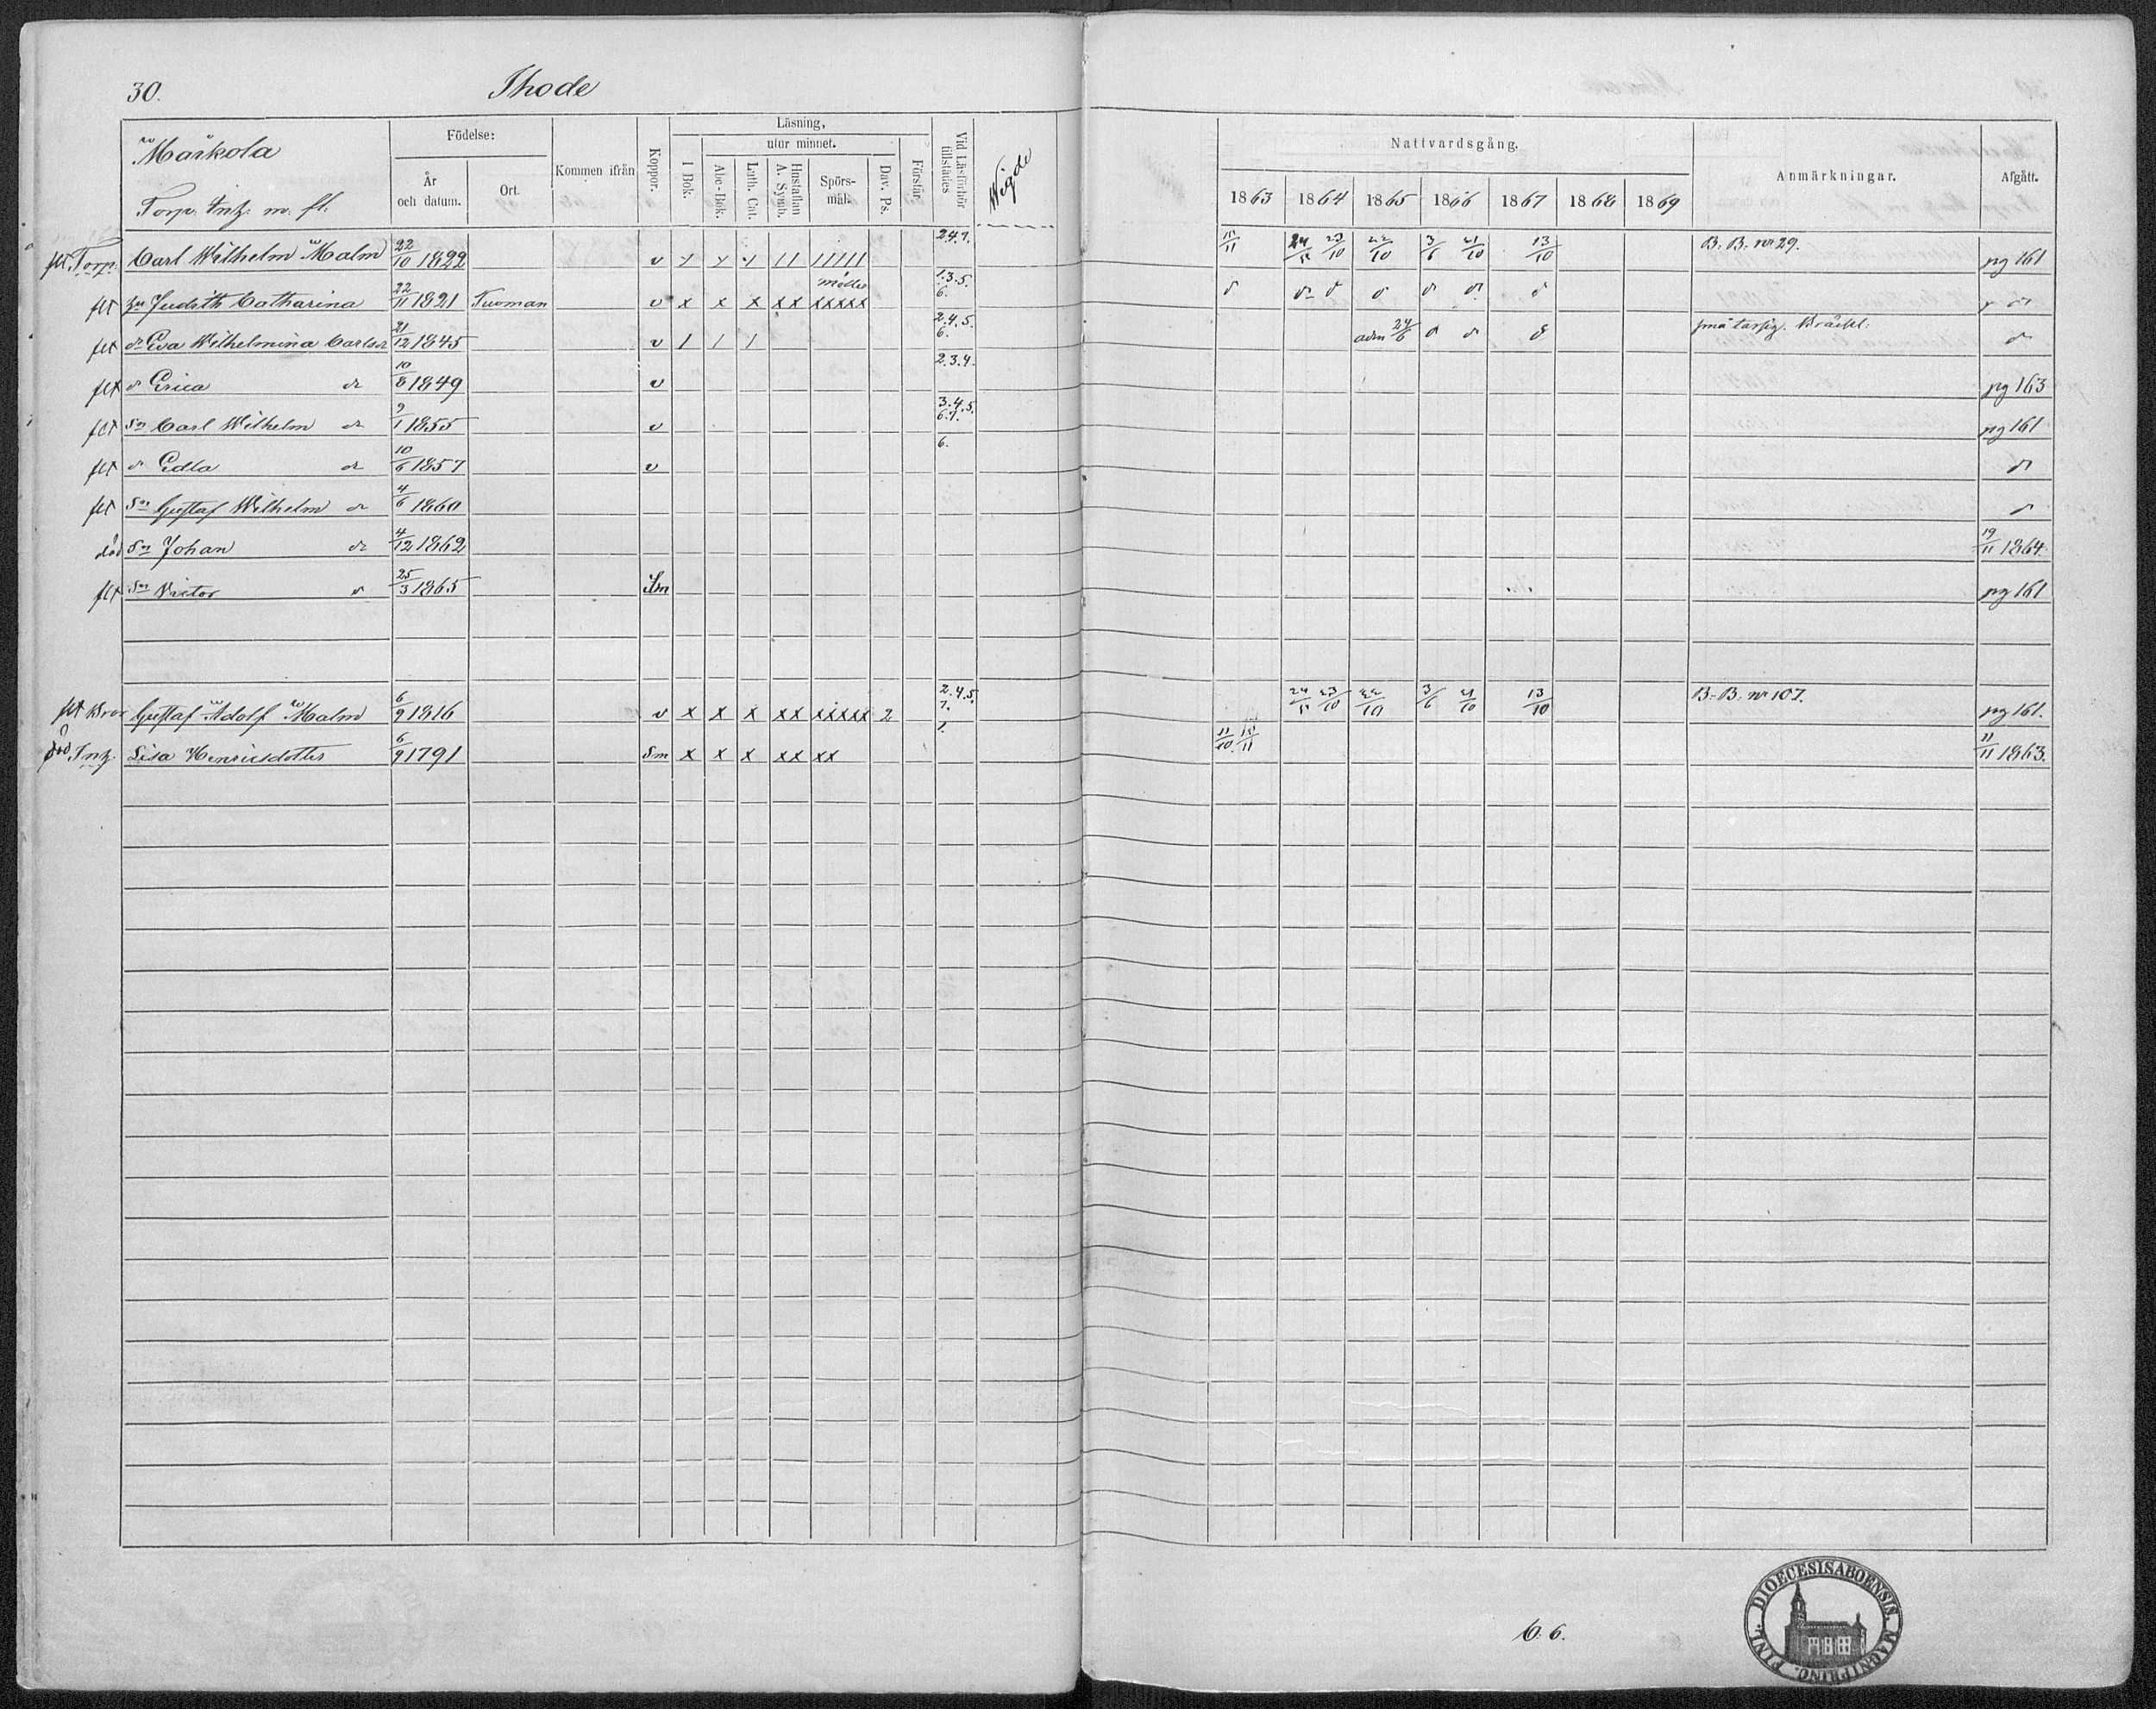 30. Thode
Märkola
Torp. Intz. m. fl.
Födelse:
År och datum.
Ort.
Kommen ifrån
Koppor.
Läsning,
I Bok.
utur minnet.
Abc-Bok.
Luth. Cat.
Hustaflan A. Symb.
Spörsmål.
Dav. Ps.
Förstår.
Vid Läsförhör tillstädes
Wigde
Nattvardsgång.
1863 1864 1865 1866 1867 1868 1869
Anmärkningar.
Afgått.
flt Torp. Carl Wilhelm Malm 22/10 1822 v 2.4.7. 24/ 23/10 22/10 3/6 21/10 13/10 B. B. nr 29. pg 161
flt Judith Catharina 22/11 1821 Tuoman v x x x xx xxxxx 1.3.5. 6.
flt dr Eva Wilhelmina Carlsdr 21/12 1845 v 1 1 1 2.4.5. 6. adm 24/6
flt d Erica dr 10/8 1849 v 2.3.4. pg 163
flt Sn Carl Wilhelm dr 9/1 1855 v 3.4.5. 6.7. pg 161
flt d Edla dr 10/6 1857 v 6.
flt Sn Gustaf Wilhelm dr 4/6 1860
död Sn Johan dr 4/12 1862 19/11 1864.
flt Sn Victor 25/3 1865 Sm pg 161
flt Bror Gustaf Adolf Malm 6/9 1816 v x x x xx xxxxx 2 2.4.5. 7. 23/10 22/10 3/6 21/10 13/10 B. B. nr 107. pg 161.
död Intz. Lisa Henricsdotter 6/9 1791 Sm x x x xx xx 1. 11/10. 11/11 1863.
6. 6.
DIOECESIS ABOENSIS. MAGNI PRINC. FINL.